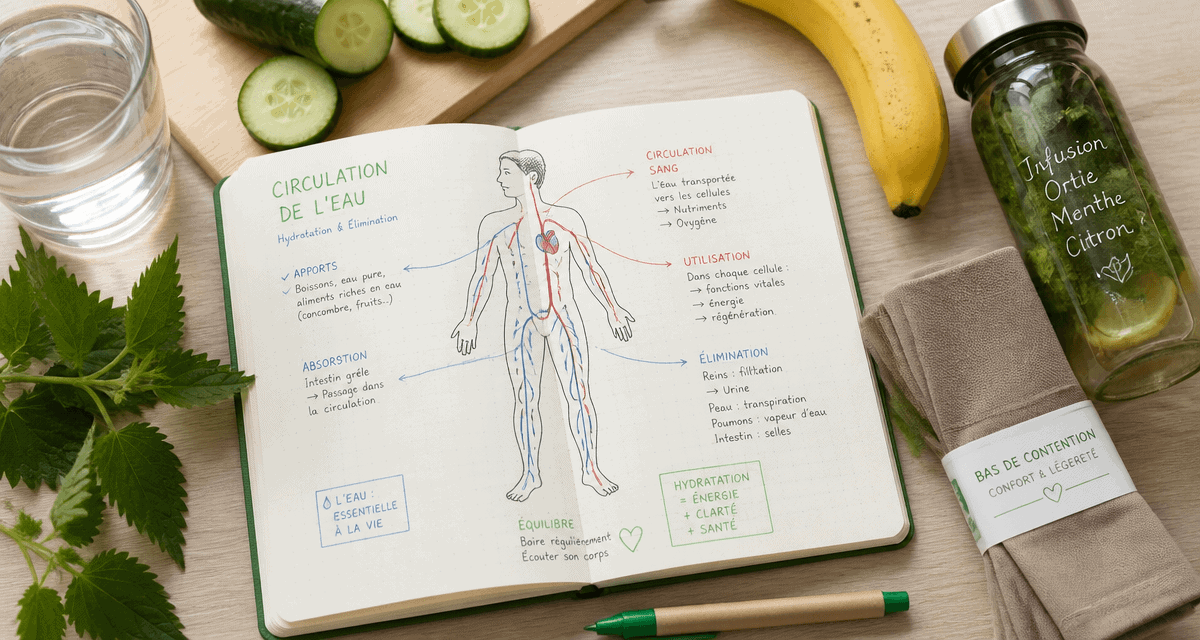 CIRCULATION
DE L'EAU
Hydratation & Élimination
✓ APPORTS
✓ Boissons, eau pure,
aliments riches en eau
(concombre, fruits...)
ABSORBTION
Intestin grêle
→ Passage dans
la circulation
L'EAU :
ESSENTIELLE
À LA VIE
CIRCULATION
SANG
L'Eau transportée
vers les cellules
→ Nutriments
→ Oxygène
UTILISATION
Dans chaque cellule :
→ fonctions vitales
→ énergie
→ régénération.
ÉLIMINATION
Reins : filtration
→ Urine
Peau : transpiration
Poumons : vapeur d'eau
Intestin : selles
HYDRATATION
= ÉNERGIE
+ CLARTÉ
+ SANTÉ
ÉQUILIBRE
Boire régulièrement
Écouter son corps
Infusion
Ortie
Menthe
Citron
BAS DE CONTENTION
CONFORT & LÉGERETÉ